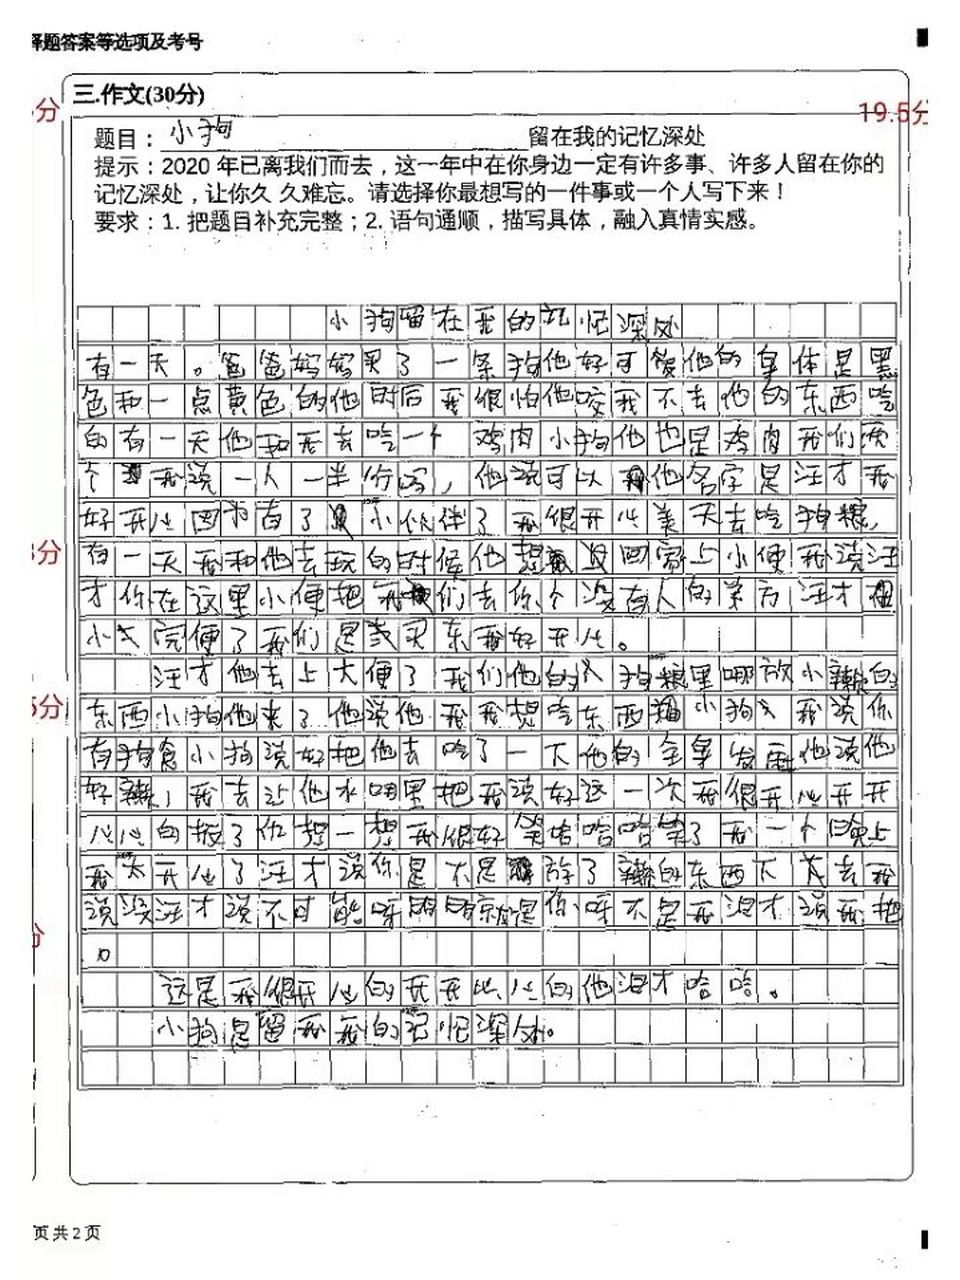 择题答案等选项及考号
三.作文(30分)
分
19.5分
题目：小狗 留在我的记忆深处
提示：2020 年已离我们而去，这一年中在你身边一定有许多事、许多人留在你的
记忆深处，让你久 久难忘。请选择你最想写的一件事或一个人写下来！
要求：1. 把题目补充完整；2. 语句通顺，描写具体，融入真情实感。
小狗留在我的记忆深处
有一天。爸爸妈妈买了一条狗他好可爱他的身体是黑
色和一点黄色的他时后我很怕他咬我不去他的东西吃
的有一天他和我去吃一个鸡肉小狗他也是鸡肉我们两
个我说一人一半份吗，他说可以他名字是汪才我
好开心因为有了小伙伴了我很开心美天去吃狗粮，
分
有一天我和他去玩的时候他想回家上小便我说汪
才你在这里小便把我们去你个没有人的弟方汪才
小完便了我们是我买东我好开心。
汪才他去上大便了我们他的狗粮里哪放小辣的
分
东西小狗他来了他说他我我想吃东西小狗我说你
有狗食小狗说好把他去吃了一下他的全身发麻他说他
好辣，我去让他水里把我说好这一次我很开心开开
心心的极了你想一想我很好笑哈哈哈笑了我一个晚上
我太开心了汪才说你是不是放了辣的东西下去我
说没汪才说不可能呀就是你呀不是我汪才说我把
分
。
这是我很开心的开开心心的他汪才哈哈。
小狗是留我我的记忆深处。
页 共 2 页